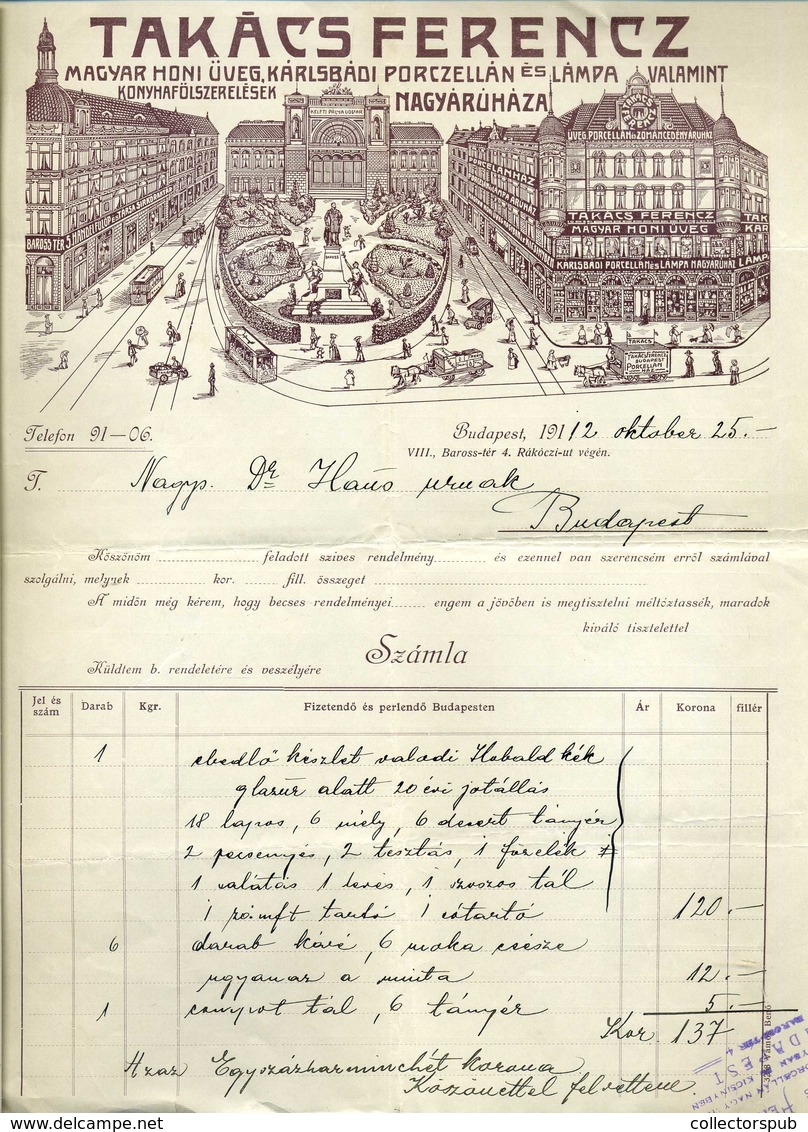 TAKÁCS FERENCZ
MAGYAR HONI ÜVEG, KÁRLSBÁDI PORCZELLÁN ÉS LÁMPA VALAMINT
KONYHAFÖLSZERELÉSEK NAGYÁRÚHÁZA
KELETI PÁLYA UDVAR
ÜVEG PORCELLÁN és ZOMÁNCEDÉNY ÁRUHÁZ
TAKÁCS FERENCZ
MAGYAR HONI ÜVEG
KÁRLSBÁDI PORCELLÁN ÉS LÁMPA NAGYÁRUHÁZ LÁMPA
BAROSS TÉR 5.
TAKÁCS
TAKÁCS FERENCZ
BUDAPEST
PORCELLÁN
Telefon 91—06.
Budapest, 191/12 oktober 25.-
VIII., Baross-tér 4. Rákóczi-ut végén.
T. Nagys. Dr Haüs urnak
Budapest
Köszönöm feladott szives rendelmény és ezennel van szerencsém erről számlával
szolgálni, melynek kor. fill. összeget
A midőn még kérem, hogy becses rendelményei engem a jövőben is megtisztelni méltóztassék, maradok
kiváló tisztelettel
Számla
Küldtem b. rendeletére és veszélyére
Jel és szám Darab Kgr. Fizetendő és perlendő Budapesten Ár Korona fillér
1 ebedlő készlet valodi Kobald kék
glazur alatt 20 évi jotállás
18 lapos, 6 mély, 6 desert tányér
2 pecsenyés, 2 tésztás, 1 főzelék
1 salátás 1 leves, 1 szoszos tál
1 tartó 1 sótartó 120.-
6 darab kávé, 6 moka csésze
ugyanaz a minta 12.-
1 compot tál, 6 tányér 5.-
Kor 137
Azaz Egyszázharminchét korona
Köszönettel felvettem.
collectorspub